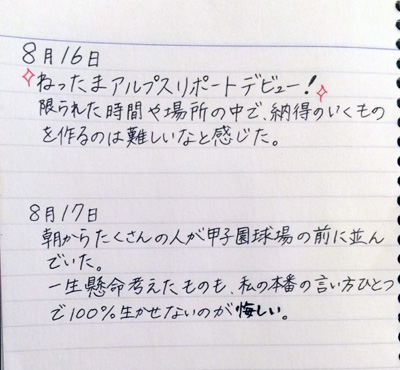 8月16日
ねったまアルプスリポートデビュー!
限られた時間や場所の中で、納得のいくもの
を作るのは難しいなと感じた。
8月17日
朝からたくさんの人が甲子園球場の前に並ん
でいた。
一生懸命考えたものも、私の本番の言い方ひとつ
で100%生かせないのが悔しい。